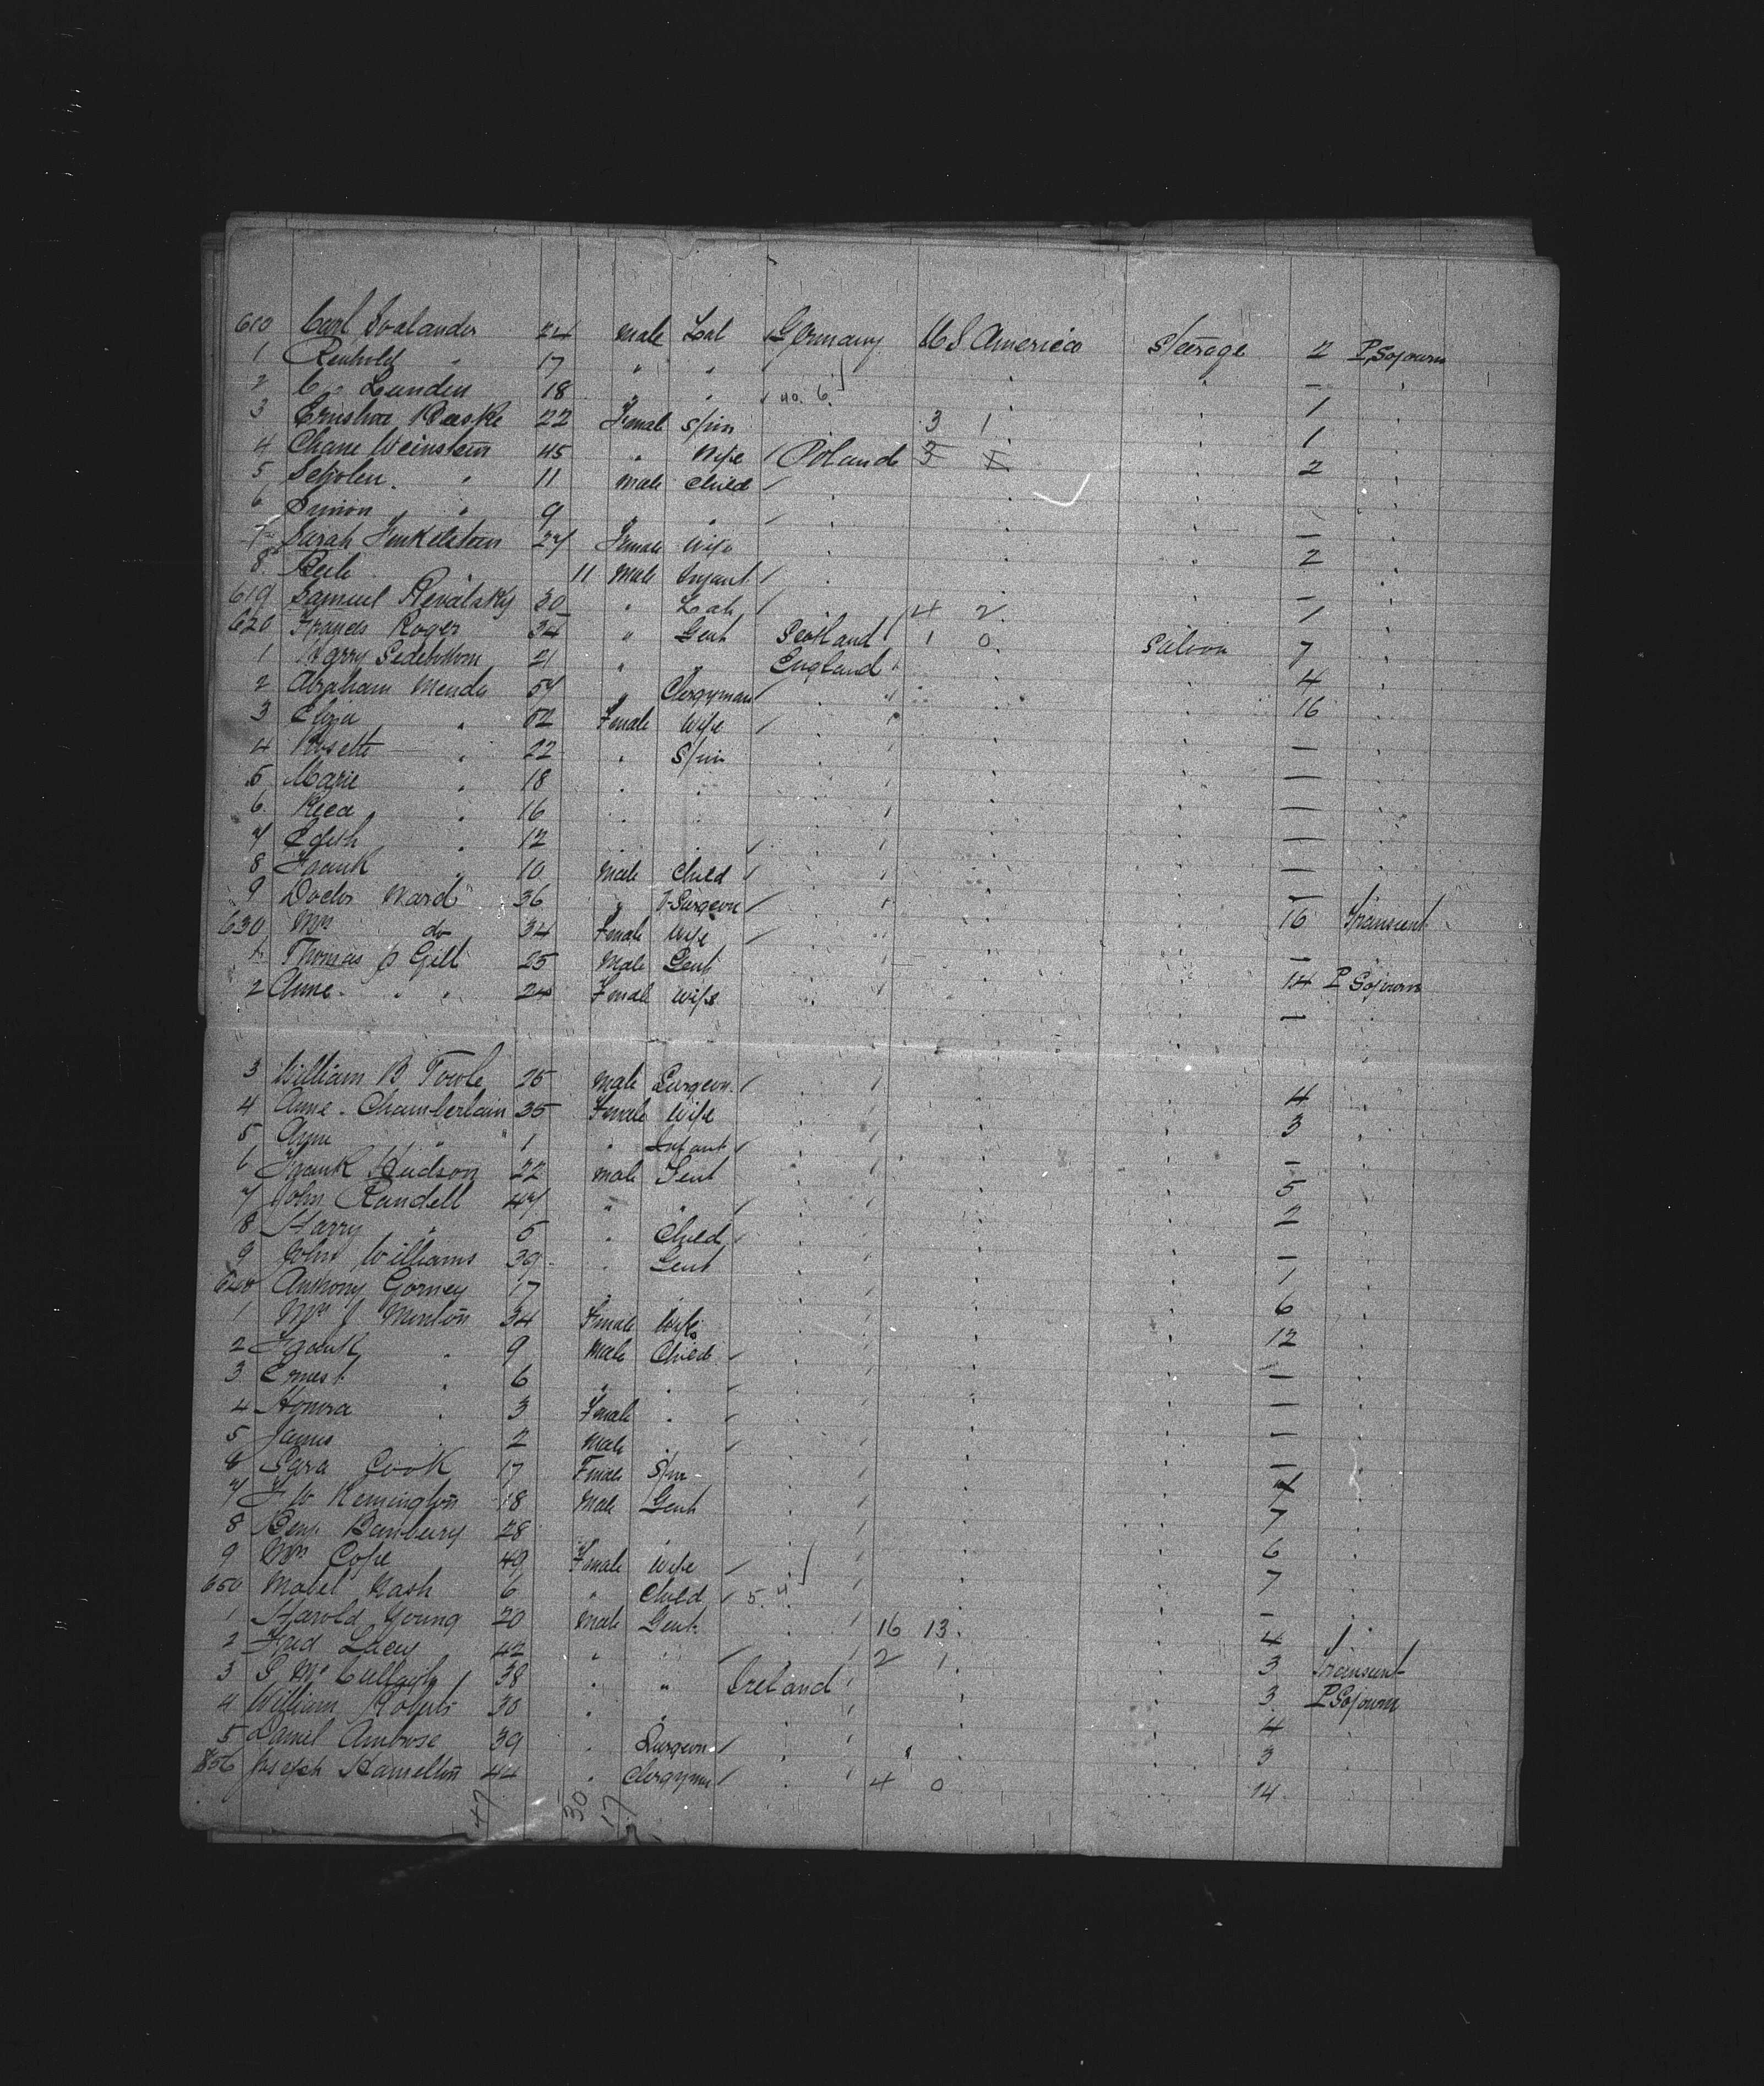 610 Carl Svalander 24 Male Lab Germany U S America Steerage 2 P. Sojourn
1 Reinhold " 17 " "
2 C Lunden 18 " " 40. 6. —
3 22 Female Spin 3 1 1
4 Chane Weinstein 45 " Wife Poland 1
5 " 11 Male Child 2
6 Simon " 9 " "
7 Sarah Finkelstein 27 Female Wife —
8 Beile 11 Male Infant 2
619 Samuel 30 " Lab 4 2 —
620 Francis Roger 34 " Gent Scotland 1 0 Saloon 1
1 Harry 21 " " England 7
2 Abraham Mendes 57 " Clergyman 4
3 Eliza " 52 Female Wife 16
4 Rosette " 22 " Spin —
5 Marie " 18 " " —
6 " 16 " " —
7 Edith " 12 " —
8 Frank " 10 Male Child —
9 Doctor Ward 36 " Surgeon —
630 Mrs do 34 Female Wife 16 Transient
1 Thomas P Gill 25 Male Gent —
2 Anne " " 24 Female Wife 14 P Sojourn
—
3 William B Towle 25 Male Surgeon
4 Anne Chamberlain 35 Female Wife 4
5 Ann " " 1 " Infant 3
6 Frank Hudson 22 Male Gent —
7 John Randell 47 " " 5
8 Harry " 5 " Child 2
9 John Williams 39 " Gent —
640 Anthony Gorney 17 " 1
1 Mrs J Minton 34 Female Wife 6
2 Frank " 9 Male Child 12
3 Ernest " 6 " " —
4 Honora " 3 Female " —
5 James 2 Male —
6 Sara Cook 17 Female Spin —
7 F W Remington 18 Male Gent
8 Benj Banbury 28 7
9 Mrs Cope 49 Female Wife 6
650 Mabel Nash 6 " Child 5. 4 7
1 Harold Young 20 Male Gent 16 13 —
2 Fred Lacey 42 " " 2 1 4
3 S McCullagh 38 " " Ireland 3 Transient
4 William Roberts 30 " " 3 P Sojourn
5 Daniel Ambrose 39 " Surgeon 4
656 Joseph Hamilton 44 " Clergyman 4 0 3
14
47 30 17